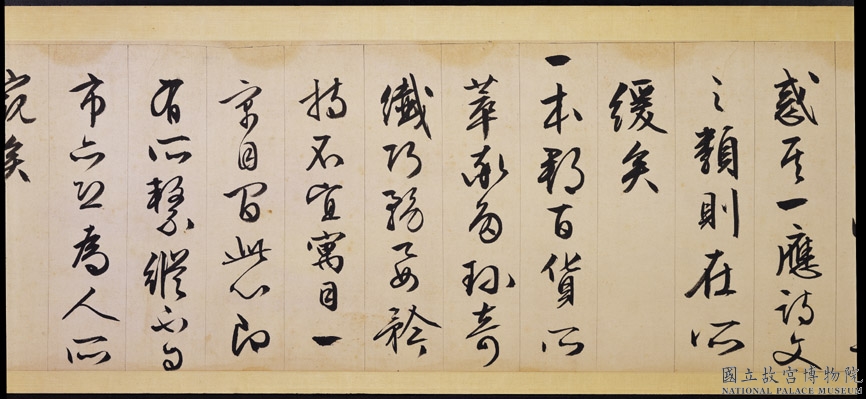 惑其一應詩文
之類則在所
緩矣
一本郡百貨所
萃多珍奇
纖巧務要矜
持不宜寓目一
寓目間此心即
有所繫縱不
市亦恐為人所
窺矣
國立故宮博物院
NATIONAL PALACE MUSEUM